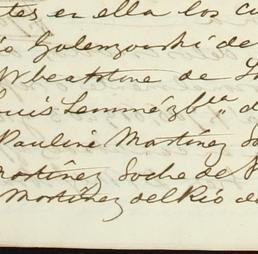 tes en ella los cu
io Golenzowski de
Wheatstone de Lo
Louis Lemméz bra. d
Pauline Martínez So
Martínez Soche de
Martínez del Río de